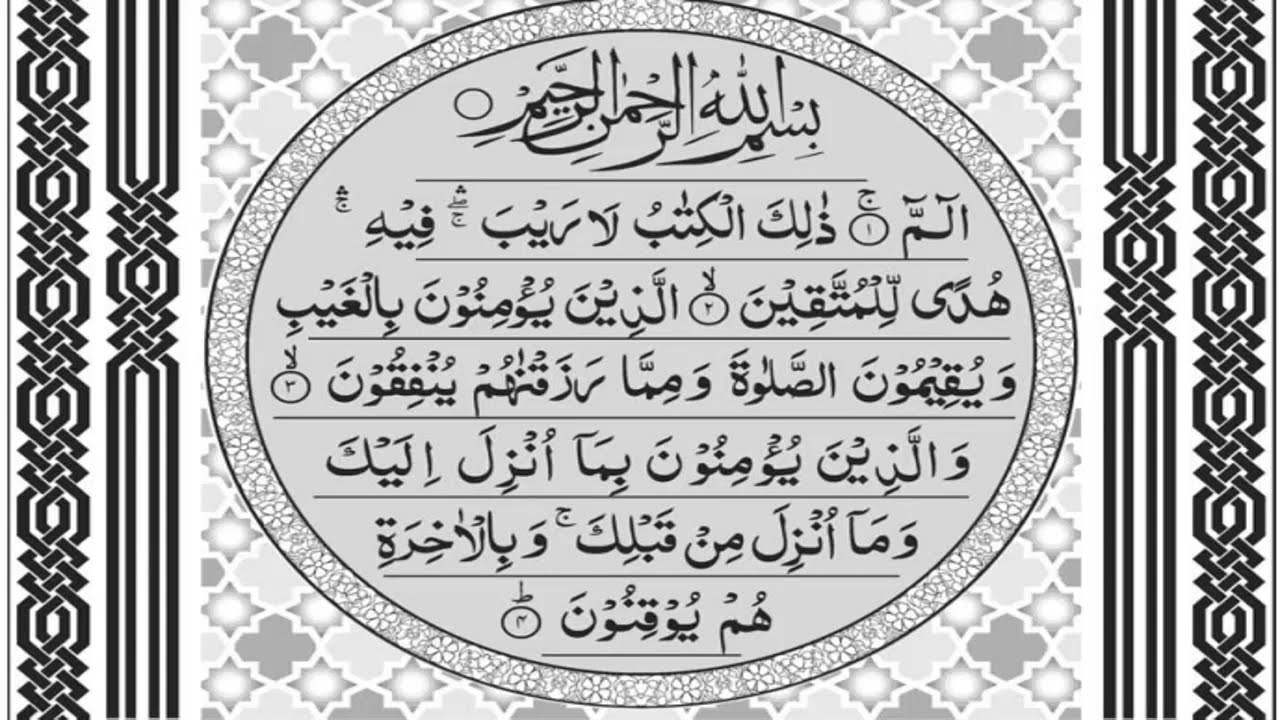 بِسْمِ اللّٰهِ الرَّحْمٰنِ الرَّحِيْمِ ۝
الٓـمّٓ ۚ﴿۱﴾ ذٰلِكَ الْكِتٰبُ لَا رَيْبَ ۛۖۚ فِيْهِ ۛۚ
هُدًى لِّلْمُتَّقِيْنَ ۙ﴿۲﴾ الَّذِيْنَ يُؤْمِنُوْنَ بِالْغَيْبِ
وَيُقِيْمُوْنَ الصَّلٰوةَ وَمِمَّا رَزَقْنٰهُمْ يُنْفِقُوْنَ ۙ﴿۳﴾
وَالَّذِيْنَ يُؤْمِنُوْنَ بِمَآ اُنْزِلَ اِلَيْكَ
وَمَآ اُنْزِلَ مِنْ قَبْلِكَ ۚ وَبِالْاٰخِرَةِ
هُمْ يُوْقِنُوْنَ ؕ﴿۴﴾